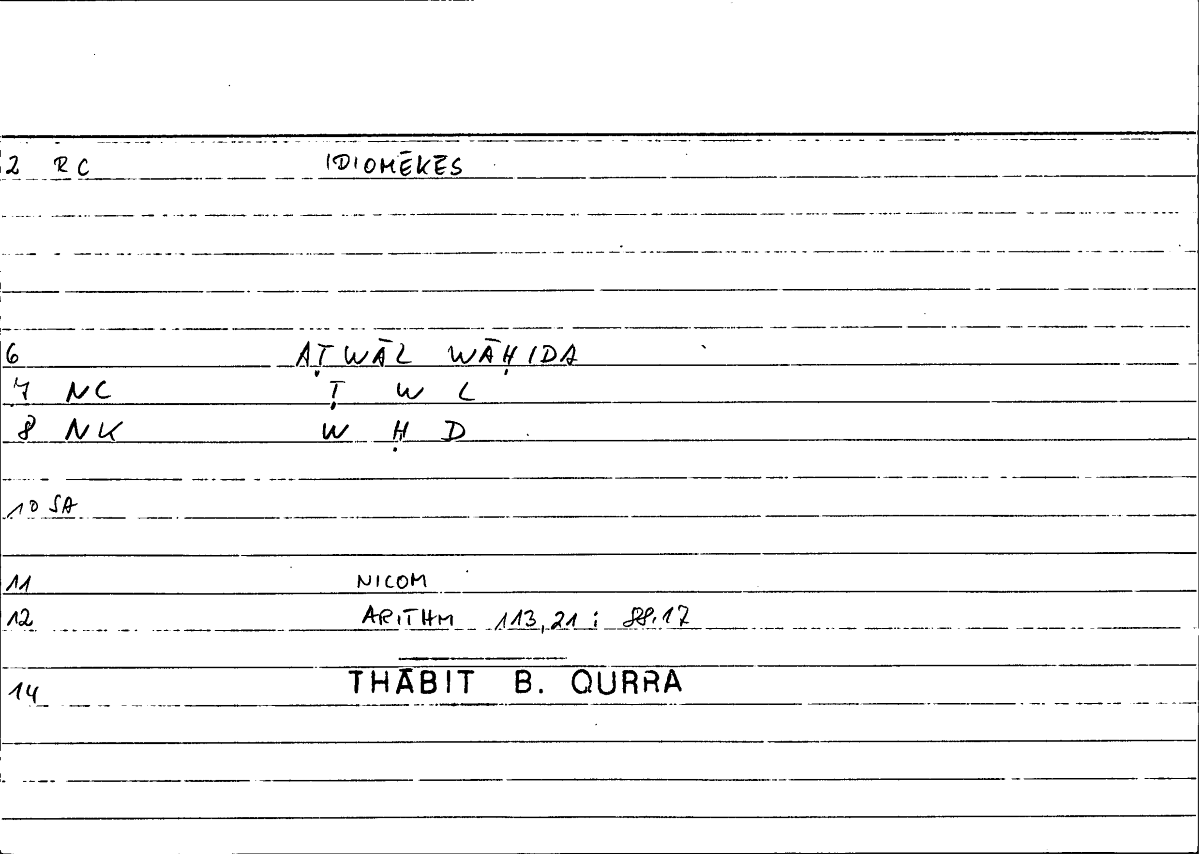 2 RC IDIOMĒKĒS
6 AṬWĀL WĀḤIDA
7 NC Ṭ W L
8 NK W Ḥ D
10 SA
11 NICOM
12 ARITHM 113,21 ; 88.17
14 THĀBIT B. QURRA